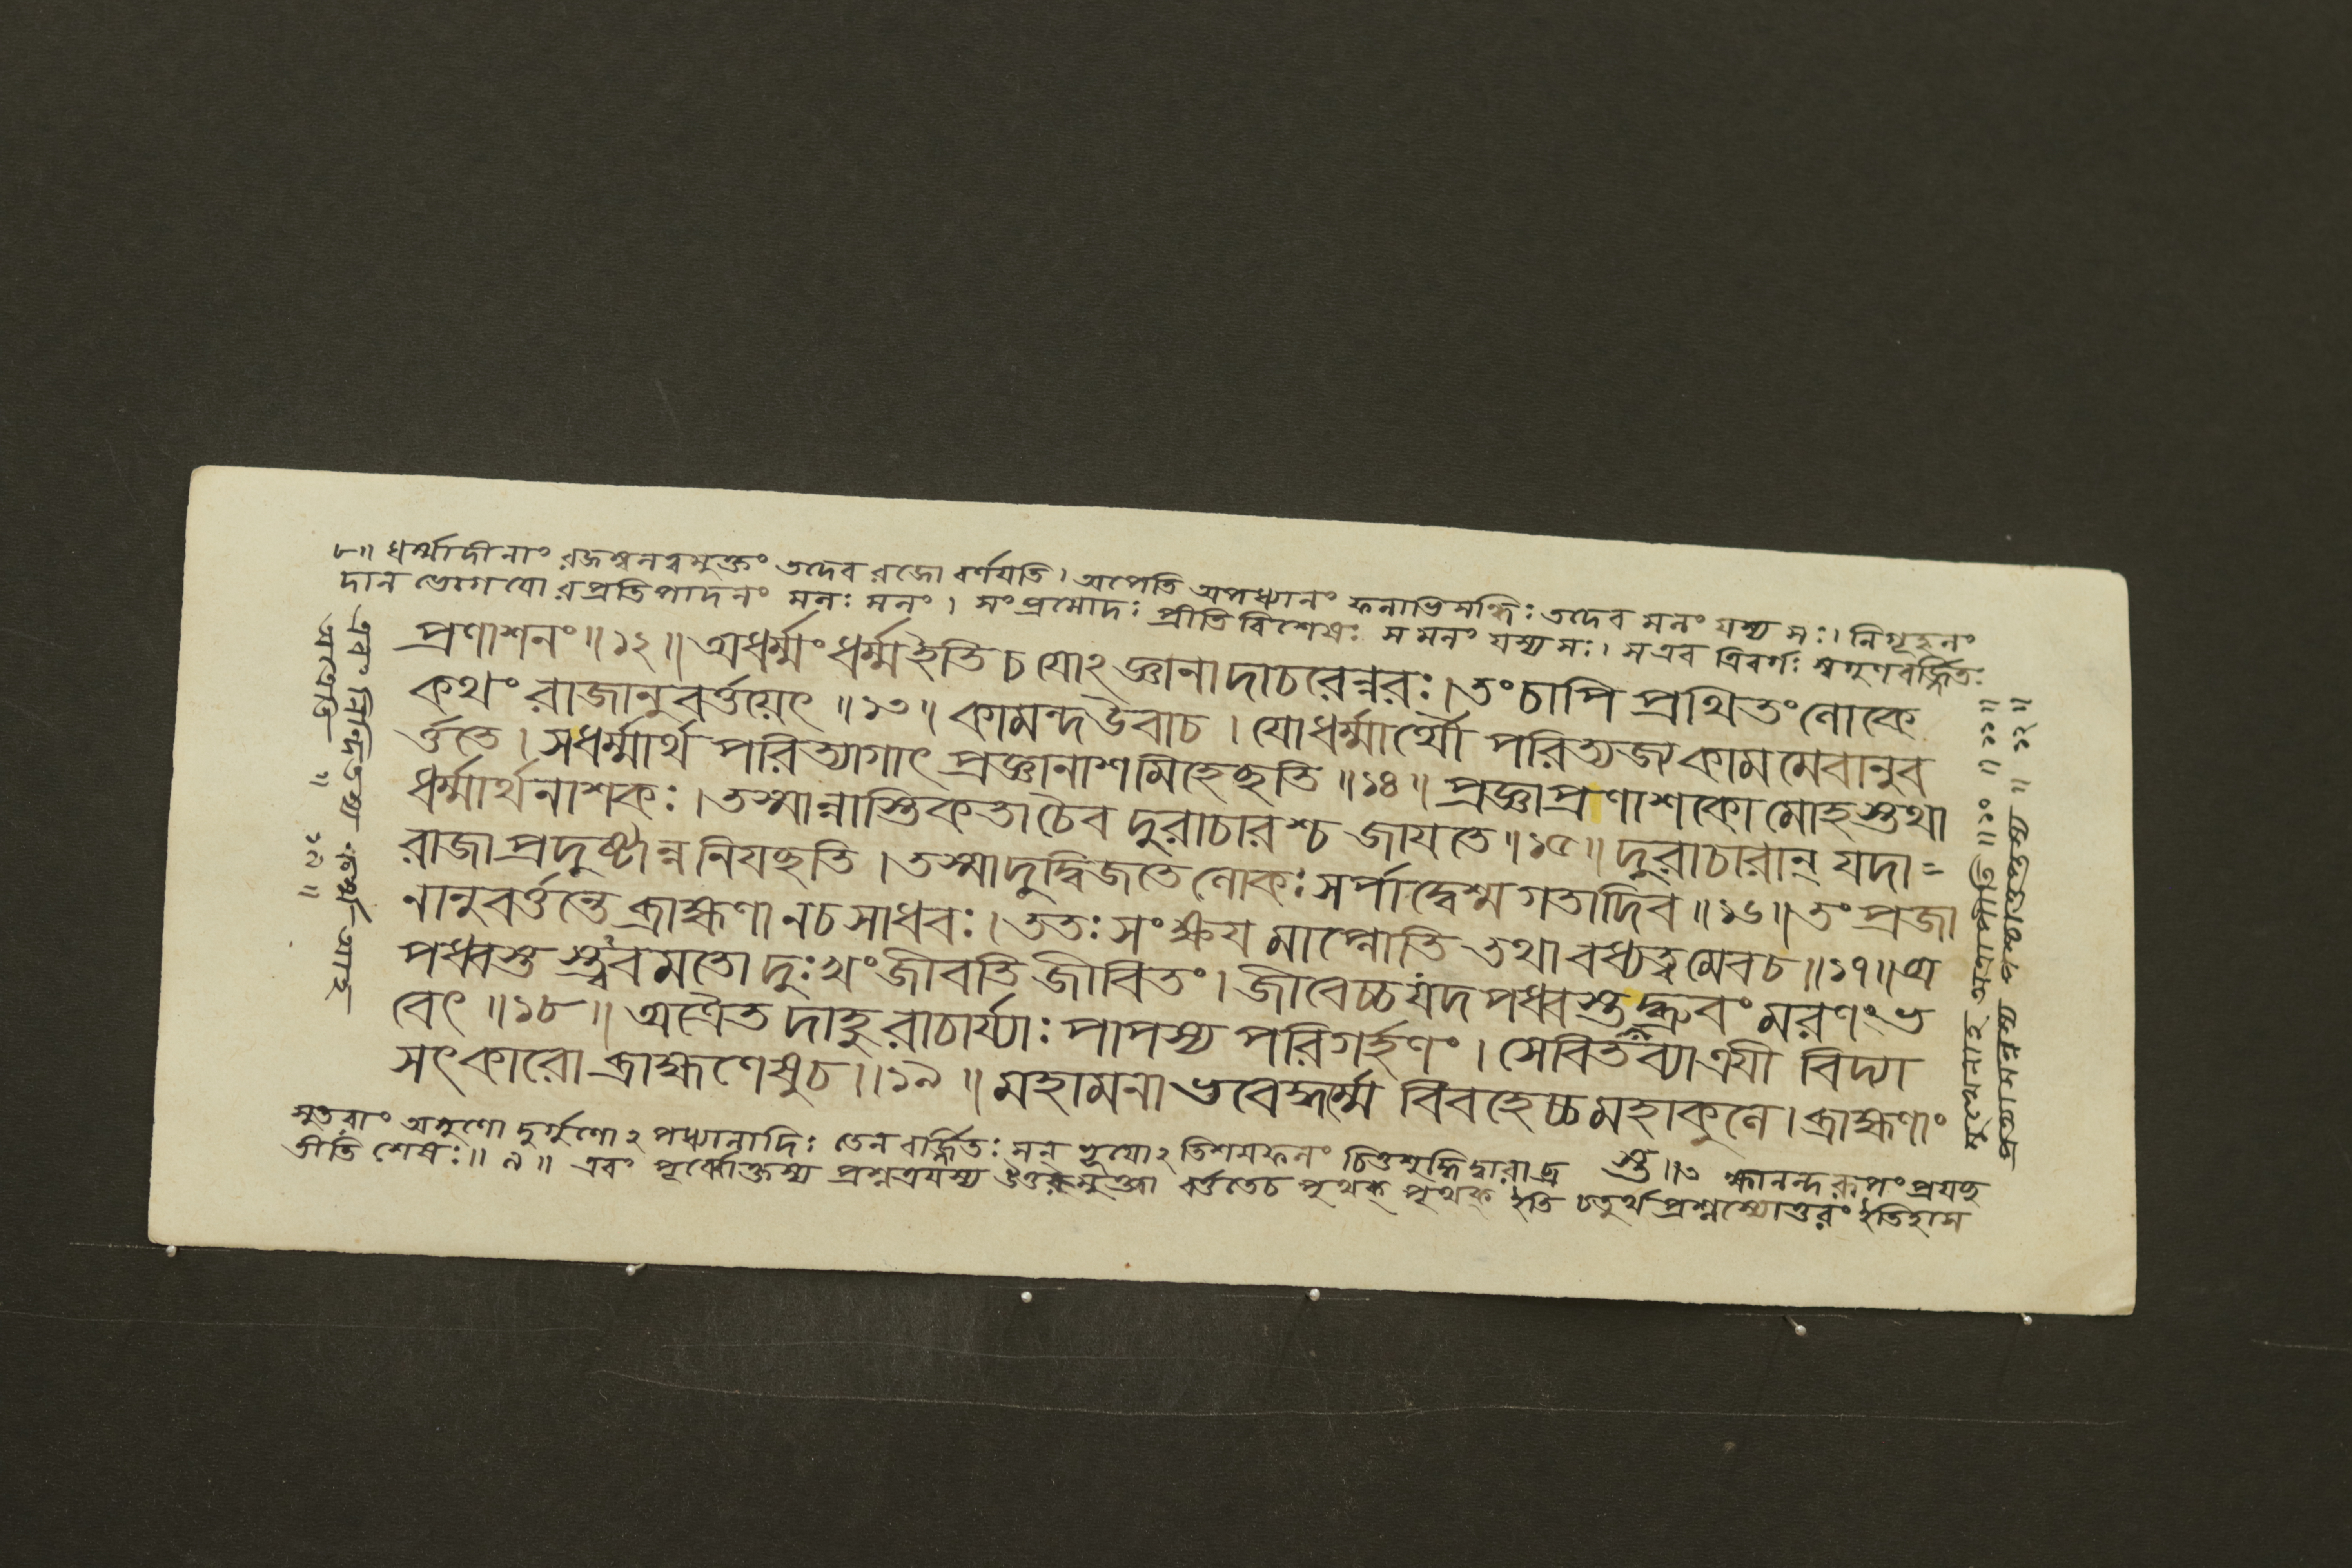 ৮॥ ধর্ম্মাদীনাং রজস্বনত্বমুক্তং তদেব রজো বর্ণযতি। অপেতি অপধ্যানং ফলাভিসন্ধিঃ তদেব মলং যস্য সঃ। নিগূহনং
দান ভোগযোরপ্রতিপাদনং মলঃ মলং। সংপ্রমোদঃ প্রীতিবিশেষঃ স মলং যস্য সঃ। স এব ত্রিবর্গঃ স্বগুণবর্জ্জিতঃ
প্রণাশনং॥১২॥ অধর্ম্মং ধর্ম্ম ইতি চ যোঽজ্ঞানাদাচরেন্নরঃ। তং চাপি প্রথিতং লোকে
কথং রাজানুবর্ত্তয়েৎ॥১৩॥ কামন্দ উবাচ। যোধর্ম্মার্থৌ পরিত্যজ্য কামমেবানুব
র্ত্ততে। সধর্ম্মার্থ পরিত্যাগাৎ প্রজ্ঞানাশমিহেচ্ছতি॥১৪॥ প্রজ্ঞাপ্রণাশকো মোহস্তথা
ধর্ম্মার্থনাশকঃ। তস্মান্নাস্তিকতা চৈব দুরাচারশ্চ জাযতে॥১৫॥ দুরাচারান্ যদা=
রাজা প্রদুষ্টান্ন নিযচ্ছতি। তস্মাদুদ্বিজতে লোকঃ সর্পাদ্বেশ্মগতাদিব॥১৬॥ তং প্রজা
নানুবর্ত্তন্তে ব্রাহ্মণা নচ সাধবঃ। ততঃ সংক্ষয মাপ্নোতি তথা বধ্যত্বমেবচ॥১৭॥ অ
পধ্বস্ত স্ত্ববমতো দুঃখং জীবতি জীবিতং। জীবেচ্চ যদপধ্বস্তদ্ধ্রুবং মরণং ভ
বেৎ॥১৮॥ অত্রৈতদাহুরাচার্য্যাঃ পাপস্য পরিগর্হণং। সেবিতব্যা ত্রযী বিদ্যা
সৎকারো ব্রাহ্মণেষুচ॥১৯॥ মহামনা ভবেদ্ধর্ম্মে বিবহেচ্চ মহাকুলে। ব্রাহ্মণাং
স্তু॥৩
সুতরাং অগুণো দুর্গুণোঽপধ্যানাদিঃ তেন বর্জ্জিতঃ সন্ ঽতিশযফলং চিত্তশুদ্ধিদ্বারা ব্র হ্মানন্দরূপং প্রযচ্ছ
তীতি শেষঃ॥৯॥ এবং পূর্ব্বোক্তস্য প্রশ্নত্রযস্য উত্তরমুক্ত্বা বর্ত্ততেচ পৃথক্ পৃথক্ ইতি চতুর্থপ্রশ্নস্যোত্তরং ইতিহাস
মুখেনাহ অত্রাপীতি॥১০॥১১॥
প্রত্যাসন্নস্য পশ্চাত্তপ্তস্য॥১২॥
এবং নিন্দিতস্য অর্থং আহ
অধর্ম্মেতি॥১৩॥